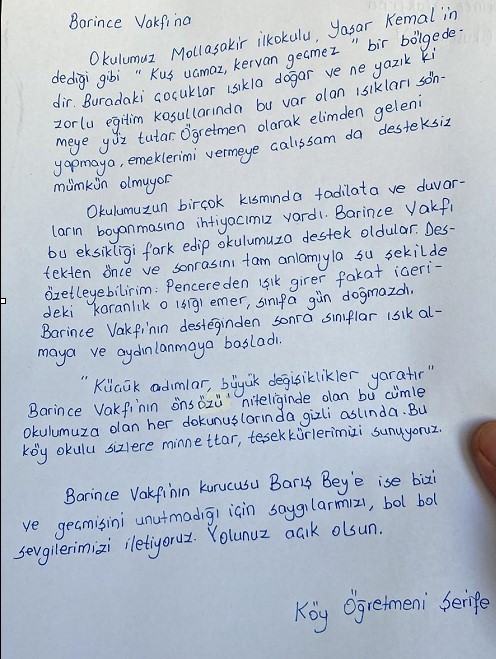 Barince Vakfına
Okulumuz Mollaşakir ilkokulu, Yaşar Kemal'in
dediği gibi "Kuş uçmaz, kervan geçmez" bir bölgede-
dir. Buradaki çocuklar ışıkla doğar ve ne yazık ki
zorlu eğitim koşullarında bu var olan ışıkları sön-
meye yüz tutar. Öğretmen olarak elimden geleni
yapmaya, emeklerimi vermeye çalışsam da desteksiz
mümkün olmuyor
Okulumuzun birçok kısmında tadilata ve duvar-
ların boyanmasına ihtiyacımız vardı. Barince Vakfı
bu eksikliği fark edip okulumuza destek oldular. Des-
tekten önce ve sonrasını tam anlamıyla şu şekilde
özetleyebilirim: Pencereden ışık girer fakat içeri-
deki karanlık o ışığı emer, sınıfa gün doğmazdı.
Barince Vakfı'nın desteğinden sonra sınıflar ışık al-
maya ve aydınlanmaya başladı.
"Küçük adımlar, büyük değişiklikler yaratır"
Barince Vakfı'nın önsözü niteliğinde olan bu cümle
okulumuza olan her dokunuşlarında gizli aslında. Bu
köy okulu sizlere minnettar, teşekkürlerimizi sunuyoruz.
Barince Vakfı'nın kurucusu Barış Bey'e ise bizi
ve geçmişini unutmadığı için saygılarımızı, bol bol
sevgilerimizi iletiyoruz. Yolunuz açık olsun.
Köy Öğretmeni Şerife